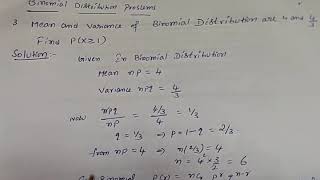 Binomial Distribution Problems
3 Mean and Variance of Binomial Distribution are 4 and 4/3
Find P(X≥1)
Solution:- Given In Binomial Distribution
Mean np = 4
Variance npq = 4/3
Now npq/np = (4/3)/4 = 1/3
q = 1/3 ⇒ p = 1-q = 2/3
from np = 4 ⇒ n(2/3) = 4
n = 4² × 3/2 = 6
Binomial P(x) = nCx p^x q^n-x